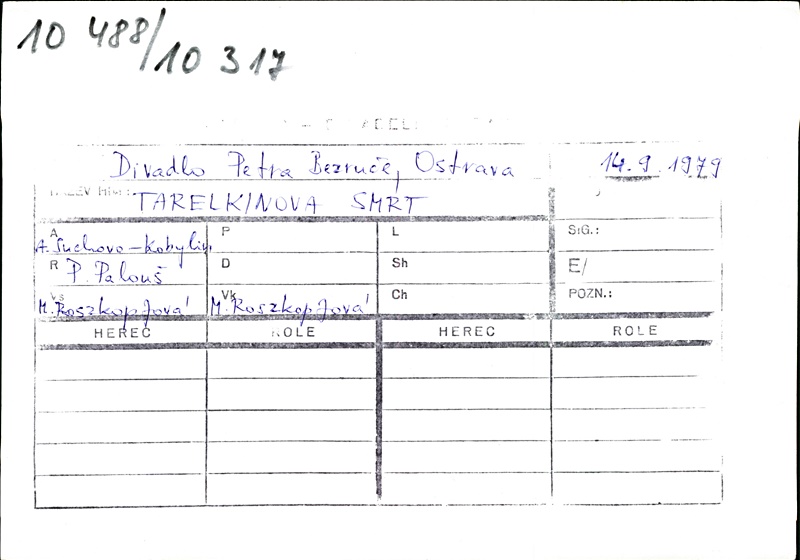 10 488/10 317
Divadlo Petra Bezruče, Ostrava 14.9.1979
TARELKINOVA SMRT
A P L SIG.:
A. Suchovo-Kobylin
R D Sh E/
P. Palouš
Vs Vk Ch POZN.:
M. Roszkopfová M. Roszkopfová
HEREC ROLE HEREC ROLE